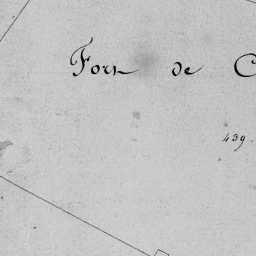 Fors de C
439.